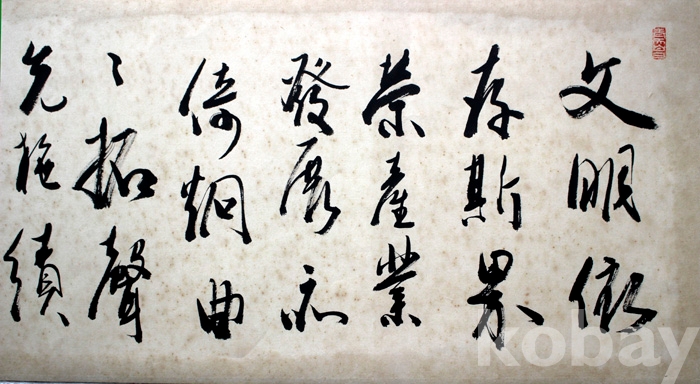 文明
存斯界
榮產業
發展亦
倚炯曲
〻拓聲
先施績
kobay